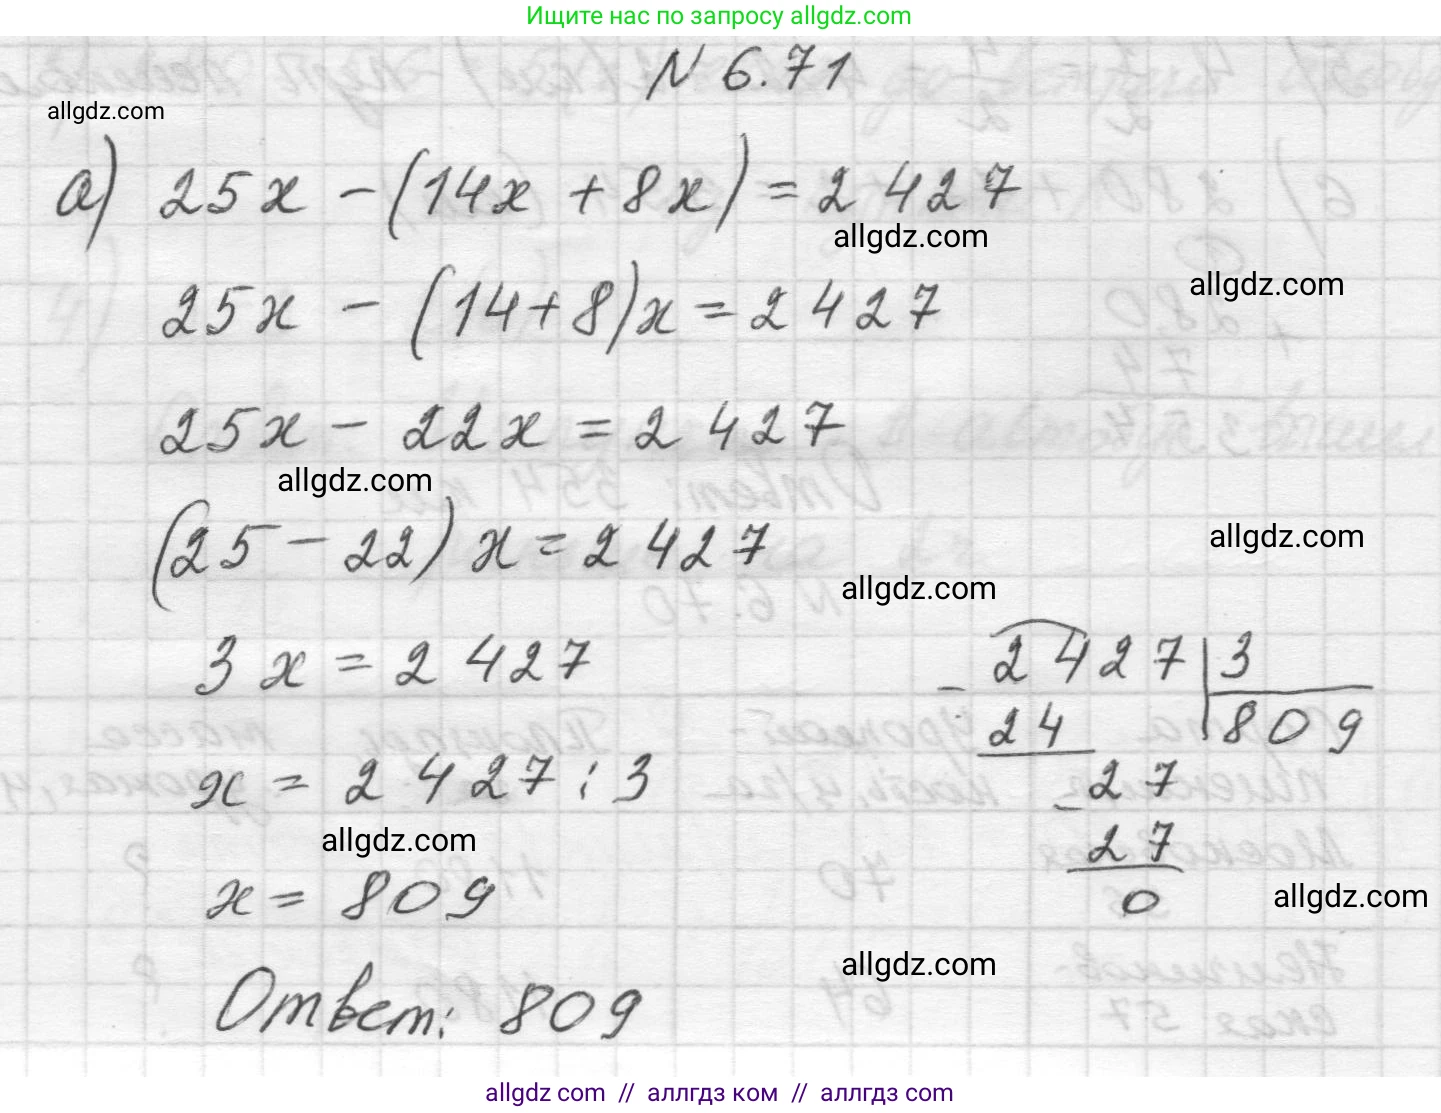 Ищите нас по запросу allgdz.com
N 6.71
allgdz.com
а) 25x - (14x + 8x) = 2427
allgdz.com
allgdz.com
25x - (14+8)x = 2427
25x - 22x = 2427
allgdz.com
(25 - 22) x = 2427
allgdz.com
allgdz.com
3x = 2427
x = 2427 : 3
allgdz.com
x = 809
Ответ: 809
- 2427 | 3
24 809
- 27
27
0
allgdz.com
allgdz.com
allgdz.com // аллгдз ком // аллгдз com